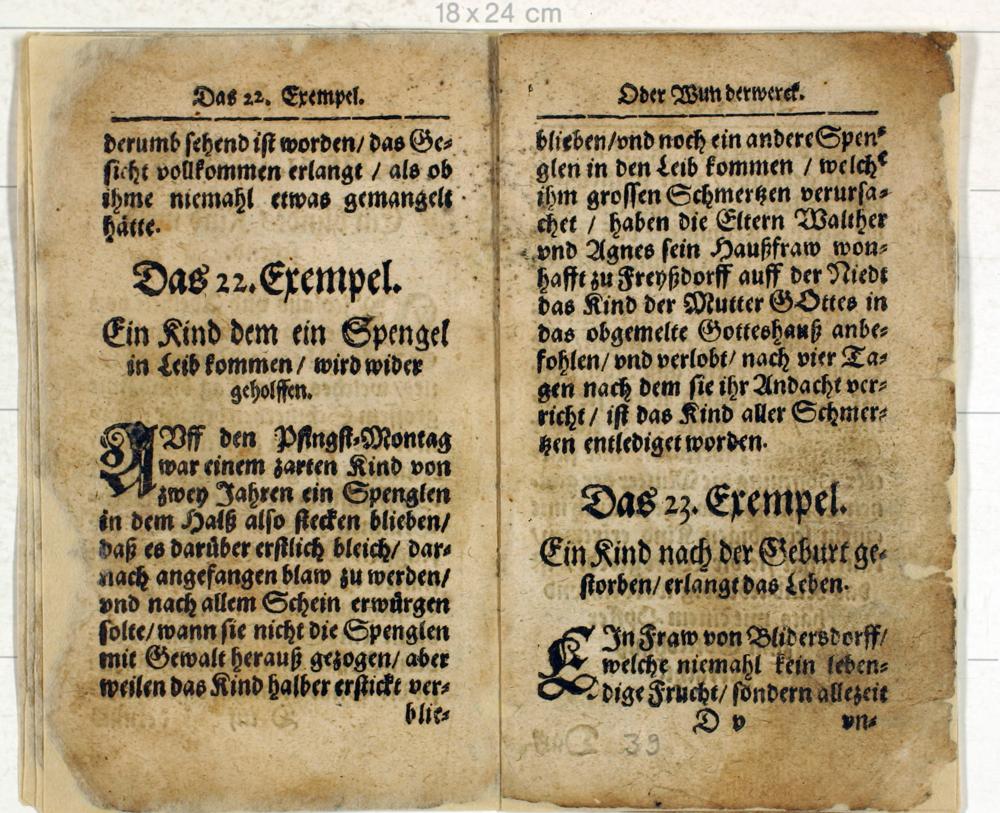 18 x 24 cm
Das 22. Exempel.
derumb sehend ist worden/ das Ge-
sicht vollkommen erlangt / als ob
ihme niemahl etwas gemangelt
hätte.
Das 22. Exempel.
Ein Kind dem ein Spengel
in Leib kommen / wird wider
geholffen.
AUff den Pfingst-Montag
war einem zarten Kind von
zwey Jahren ein Spenglen
in dem Halß also stecken blieben/
daß es darüber erstlich bleich/ dar-
nach angefangen blaw zu werden/
vnd nach allem Schein erwürgen
solte/ wann sie nicht die Spenglen
mit Gewalt herauß gezogen/ aber
weilen das Kind halber erstickt ver-
blie-
Oder Wunderwerck.
blieben/vnd noch ein andere Spen-
glen in den Leib kommen / welche
ihm grossen Schmertzen verursa-
chet / haben die Eltern Walther
vnd Agnes sein Haußfraw won-
hafft zu Freyßdorff auff der Niedt
das Kind der Mutter GOttes in
das obgemelte Gotteshauß anbe-
fohlen/ vnd verlobt/ nach vier Ta-
gen nach dem sie ihr Andacht ver-
richt / ist das Kind aller Schmer-
tzen entlediget worden.
Das 23. Exempel.
Ein Kind nach der Geburt ge-
storben/ erlangt das Leben.
EIn Fraw von Blidersdorff/
welche niemahl kein leben-
dige Frucht/ sondern allezeit
D v vn-
39